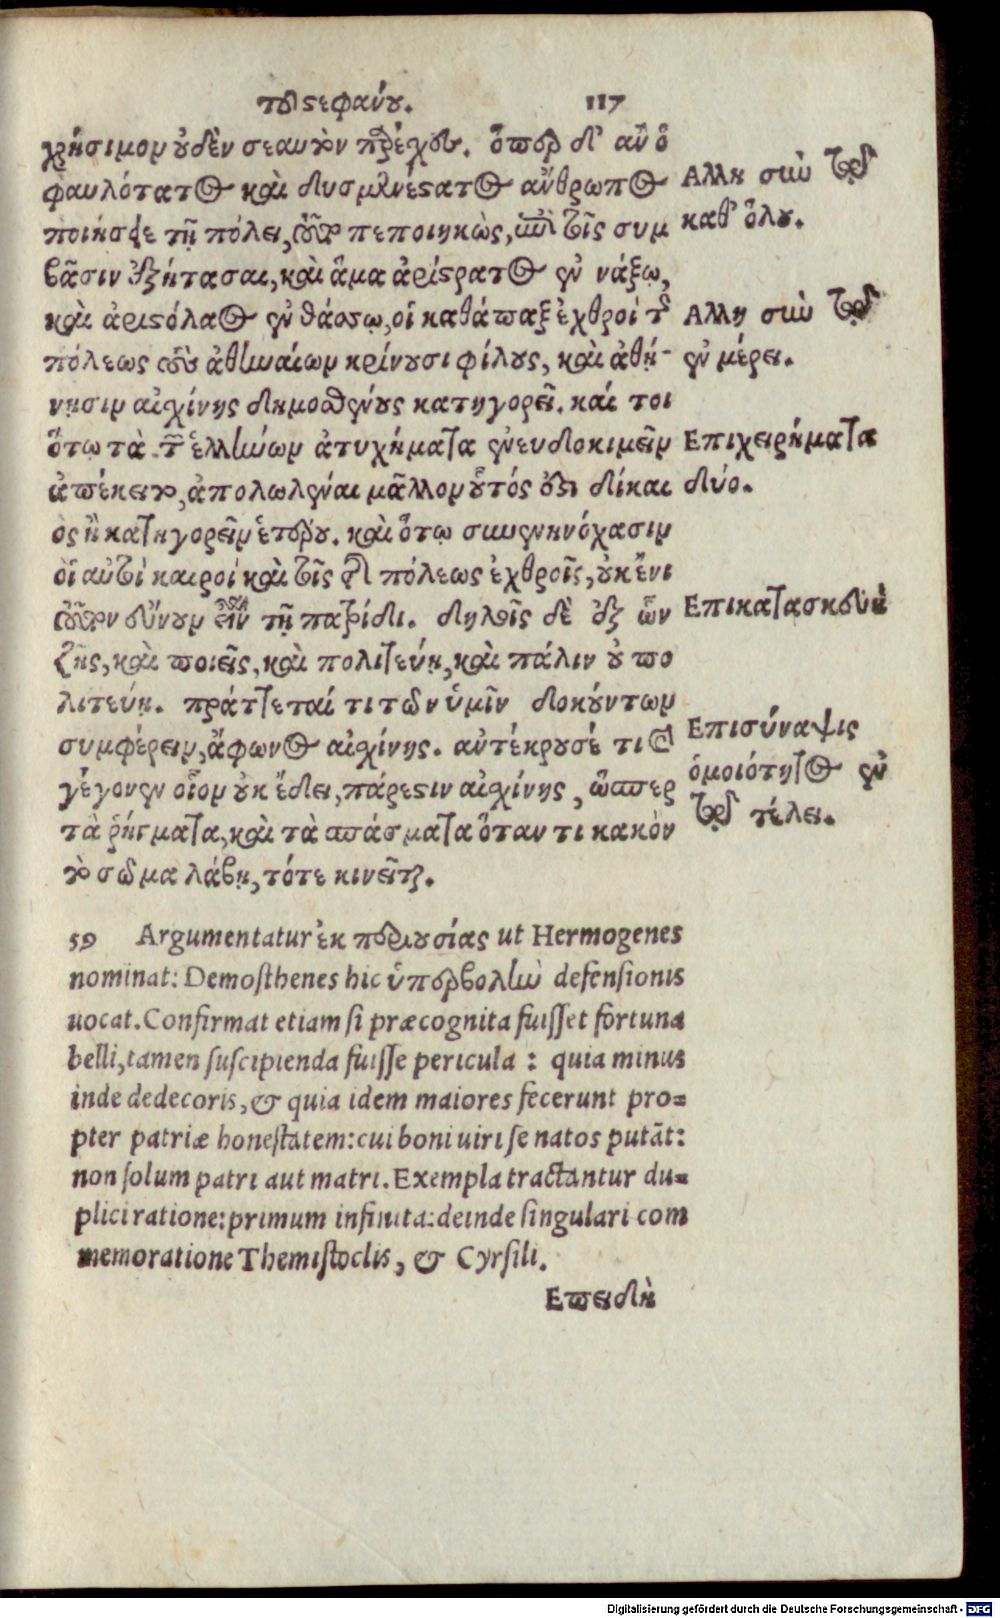 τοῦ στεφάνου. 117
χρήσιμον οὐδὲν σεαυτὸν παρέχων. ὅπερ δ' ἂν ὁ
φαυλότατος καὶ δυσμενέστατος ἄνθρωπος
ποιήσειε τῇ πόλει, τοῦτο πεποιηκὼς, ἐπὶ τοῖς συμ
βᾶσιν ἐξήτασαι, καὶ ἅμα ἀρίστρατος ἐν νάξῳ,
καὶ ἀριστόλαος ἐν θάσσῳ, οἱ καθάπαξ ἐχθροὶ τῆς
πόλεως τοὺς ἀθηναίων κρίνουσι φίλους, καὶ ἀθή-
νησιν αἰσχίνης δημοσθένους κατηγορεῖ. καί τοι
ὅτῳ τὰ τῶν ἑλλήνων ἀτυχήματα ἐνευδοκιμεῖν
ἀπέκειτο, ἀπολωλέναι μᾶλλον οὗτός ἐστι δίκαι
ος ἢ κατηγορεῖν ἑτέρου. καὶ ὅτῳ συνενηνόχασιν
οἱ αὐτοὶ καιροὶ καὶ τοῖς τῆς πόλεως ἐχθροῖς, οὐκ ἔνι
τοῦτον εὔνουν εἶναι τῇ πατρίδι. δηλοῖς δὲ ἐξ ὧν
ζῇς, καὶ ποιεῖς, καὶ πολιτεύῃ, καὶ πάλιν οὐ πο
λιτεύῃ. πράττεταί τι τῶν ὑμῖν δοκούντων
συμφέρειν, ἄφωνος αἰσχίνης. αὐτέκρουσέ τι καὶ
γέγονεν οἷον οὐκ ἔδει, πάρεστιν αἰσχίνης, ὥσπερ
τὰ ῥήγματα, καὶ τὰ σπάσματα ὅταν τι κακὸν
τὸ σῶμα λάβῃ, τότε κινεῖται.
Αλλη σὺν τοῖς
καθ' ὅλου.
Αλλη σὺν τοῖς
ἐν μέρει.
Επιχειρήματα
δύο.
Επικατασκευὴ
Επισύναψις
ὁμοιότητος ἐν
τῷ τέλει.
59 Argumentatur ἐκ περιουσίας ut Hermogenes
nominat: Demosthenes hic ὑπερβολὴν defensionis
uocat. Confirmat etiam si præcognita fuisset fortuna
belli, tamen suscipienda fuisse pericula : quia minus
inde dedecoris, & quia idem maiores fecerunt pro=
pter patriæ honestatem: cui boni uiri se natos putāt:
non solum patri aut matri. Exempla tractantur du=
plici ratione: primum infinita: deinde singulari com
memoratione Themistoclis, & Cyrsili.
Επειδὴ
Digitalisierung gefördert durch die Deutsche Forschungsgemeinschaft - DFG